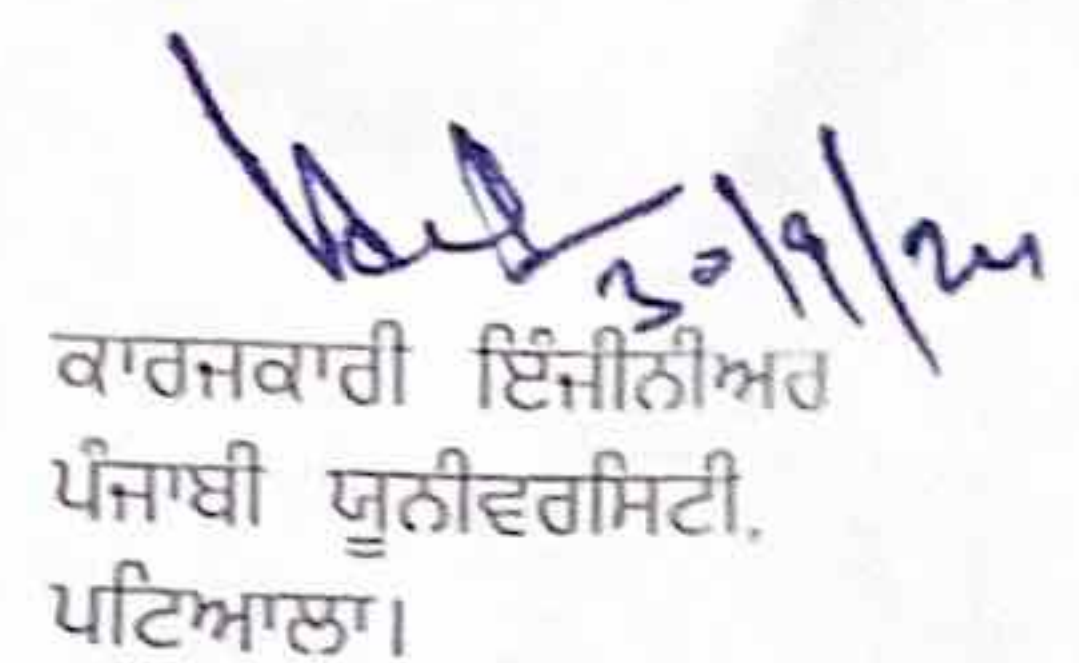 30/9/24
ਕਾਰਜਕਾਰੀ ਇੰਜੀਨੀਅਰ
ਪੰਜਾਬੀ ਯੂਨੀਵਰਸਿਟੀ.
ਪਟਿਆਲਾ।